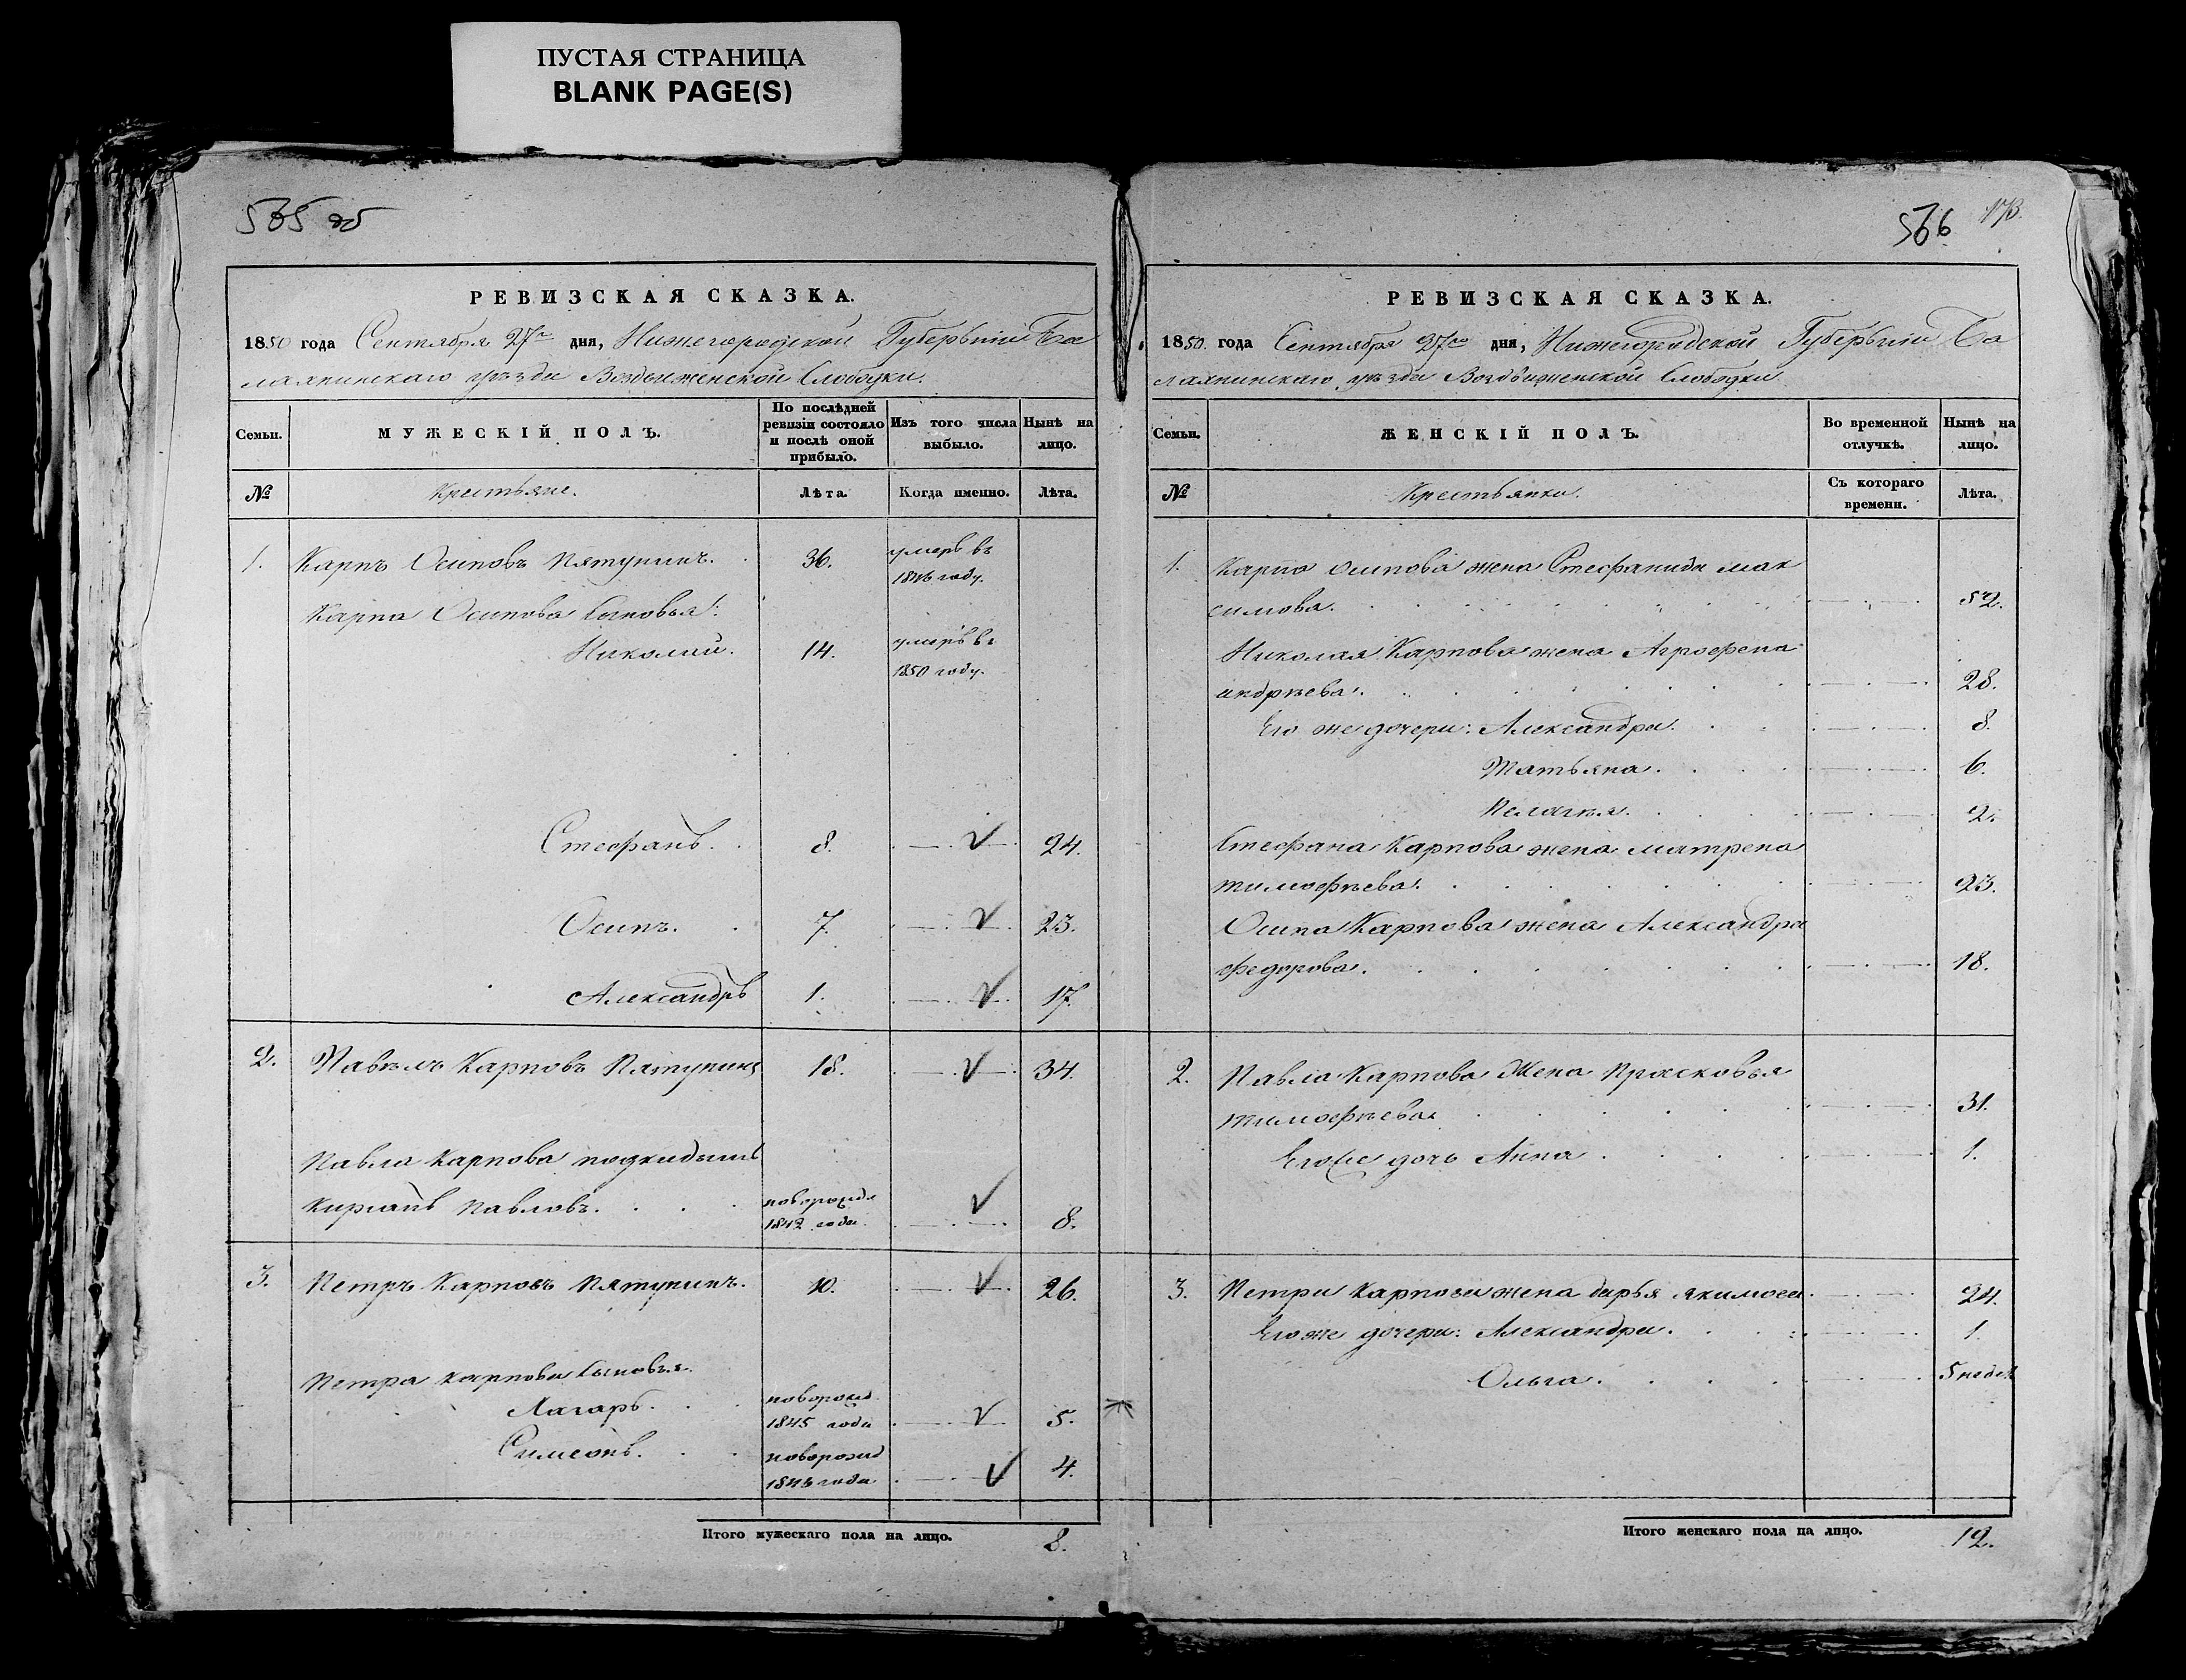 ПУСТАЯ СТРАНИЦА
BLANK PAGE(S)
565 об
РЕВИЗСКАЯ СКАЗКА.
1850 года Сентября 27го дня, Нижегородской Губерьнии Ба
лахнинскаго уезда Воздвиженской Слободки.
Семьи.
МУЖЕСКІЙ ПОЛЪ.
По послѣдней ревизіи состояло и послѣ оной прибыло.
Изъ того числа выбыло.
Нынѣ на лицо.
№
Крестьяне.
Лѣта.
Когда именно.
Лѣта.
1. Карпъ Осиповъ Пятунинъ. 36. умеръ въ
1846 году.
Карпа Осипова Сыновья:
Николай. 14. умеръ въ
1850 году.
Стефанъ. 8. 24.
Осипъ. 7. 23.
Александръ 1. 17.
2. Павелъ Карповъ Пятунинъ 18. 34.
Павла Карпова подкидышъ
Кирианъ Павловъ. новорожд
1842 года. 8.
3. Петръ Карповъ Пятунинъ. 10. 26.
Петра Карпова Сыновья.
Лазарь. новорожд
1845 года 5.
Симеонъ. новорожд
1846 года 4.
Итого мужескаго пола на лицо. 8.
566
173.
РЕВИЗСКАЯ СКАЗКА.
1850. года Сентября 27го дня, Нижегородской Губерьнии Ба
лахнинскаго уезда Воздвиженской Слободки
Семьи.
ЖЕНСКІЙ ПОЛЪ.
Во временной отлучкѣ.
Нынѣ на лицо.
№
Крестьянки.
Съ котораго времени.
Лѣта.
1. Карпа Осипова жена Стефанида мак
симова. 52.
Николая Карпова жена Агрофена
андрѣева. 28.
Его же дочери: Александра. 8.
Татьяна. 6.
Пелагѣя. 2.
Стефана Карпова жена матрена
тимофѣева. 23.
Осипа Карпова жена Александра
федорова. 18.
2. Павла Карпова Жена Прасковья
тимофѣева 31.
Его же дочь Анна 1.
3. Петра Карпова жена дарья якимова 24.
Его же дочери: Александра. 1.
Ольга. 5 недел
Итого женскаго пола на лицо. 12.